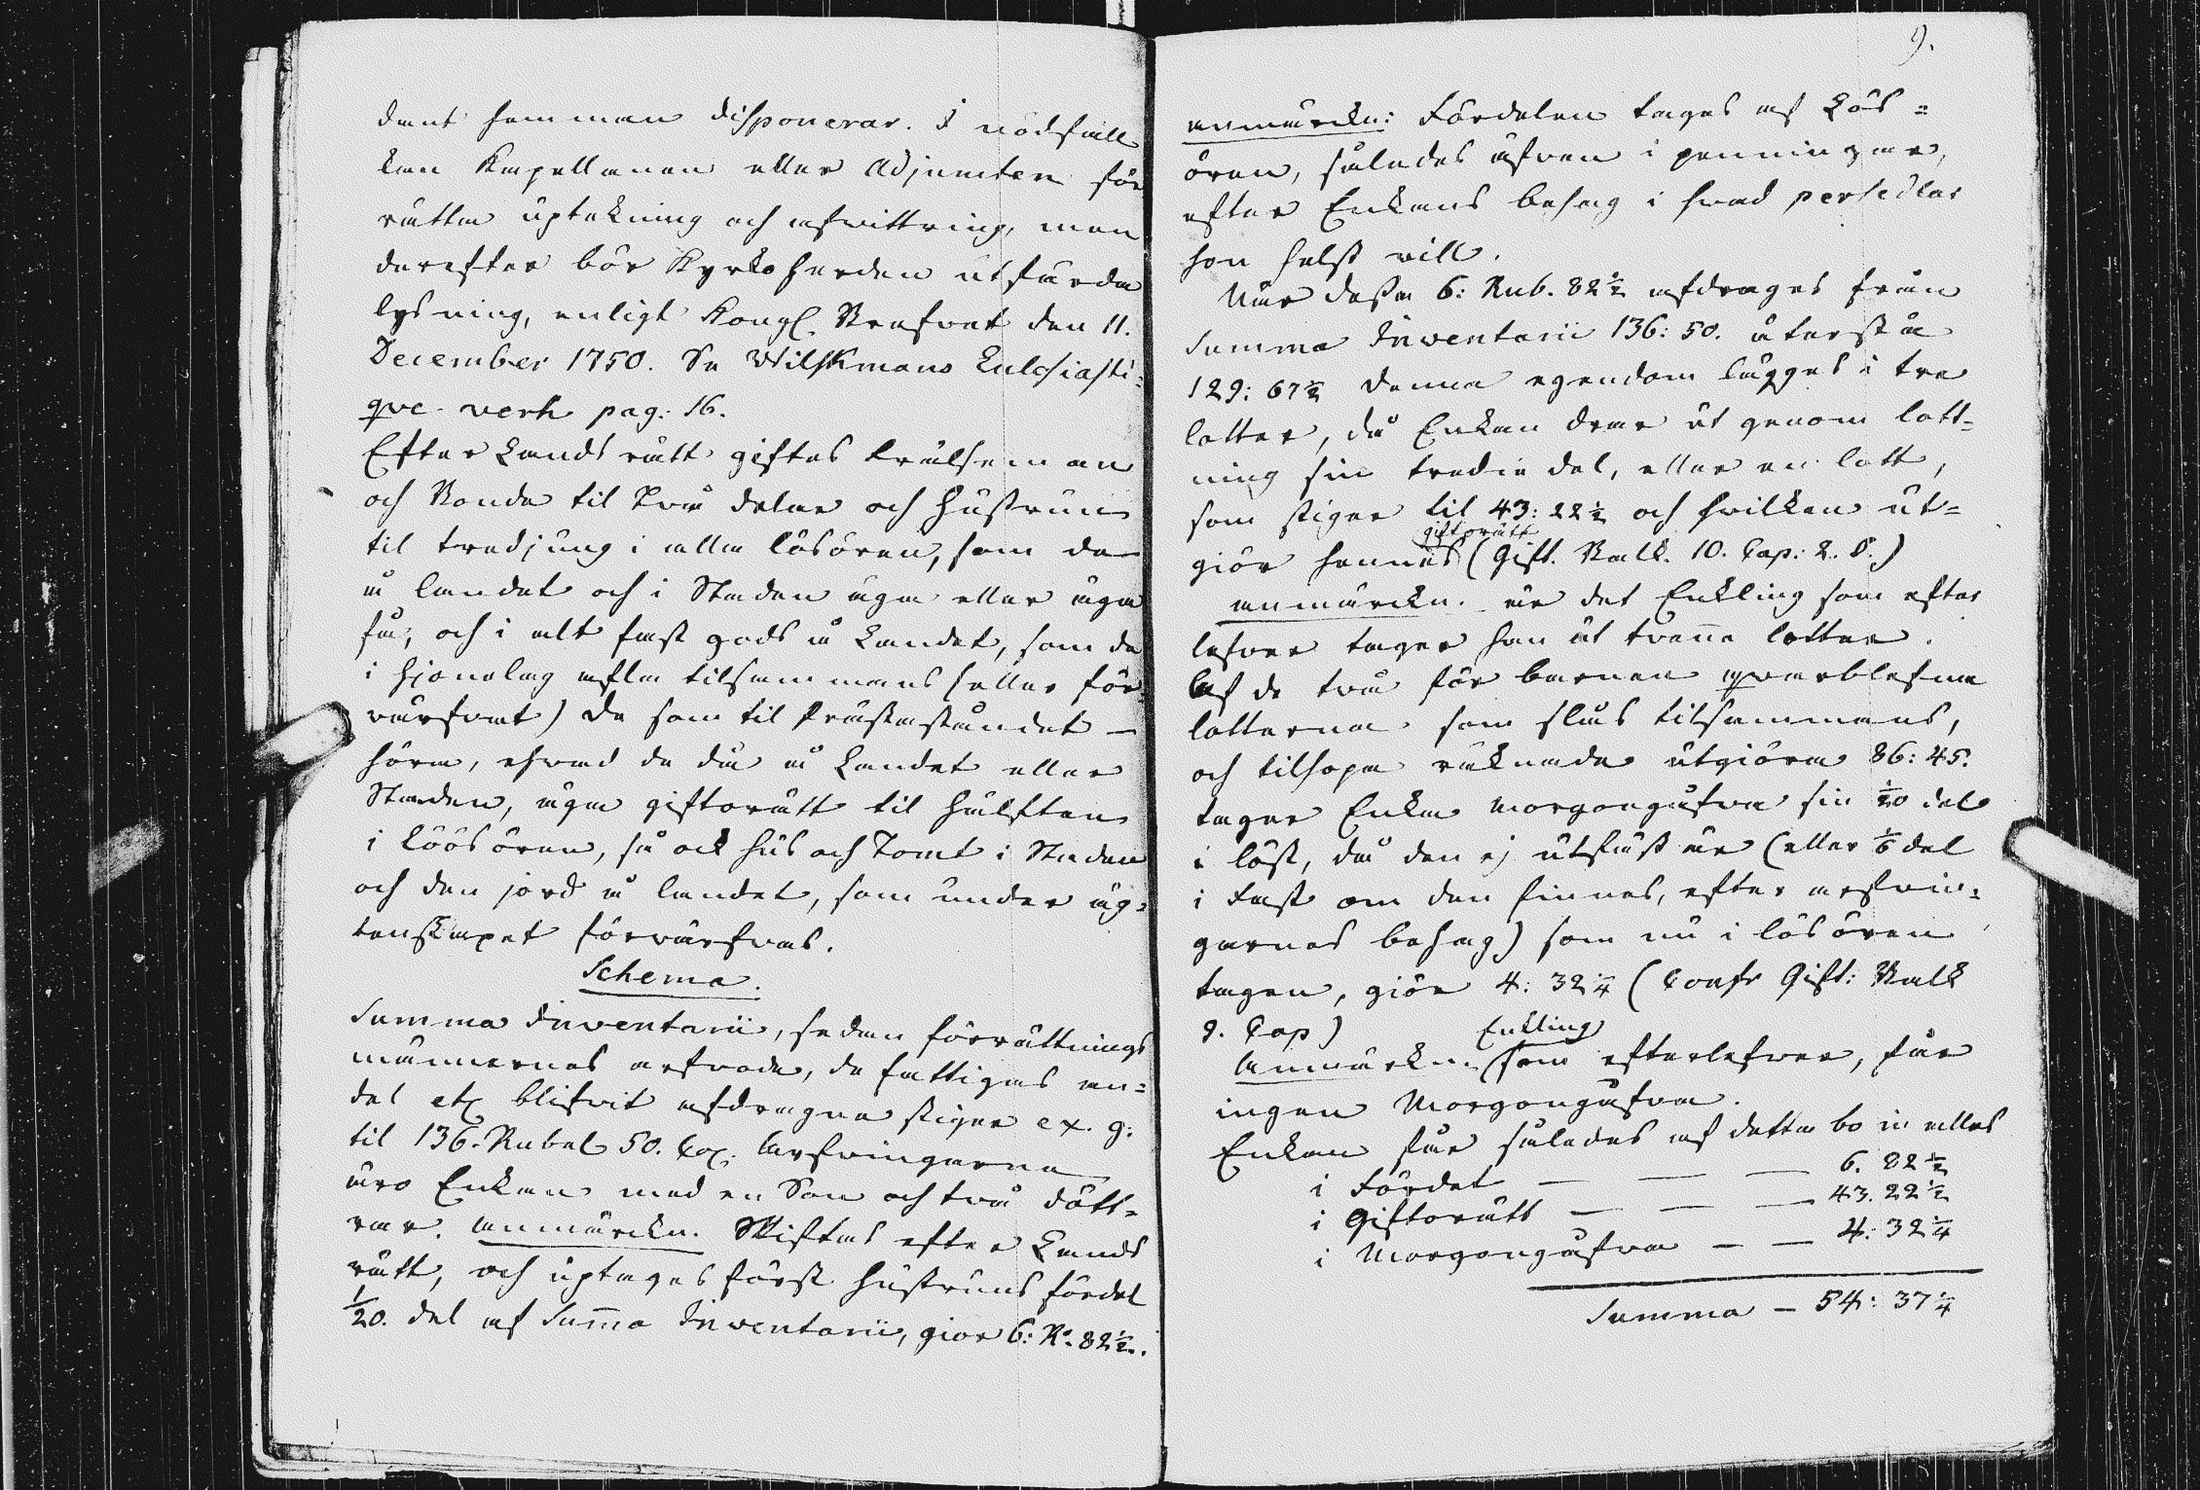 dent hemman disponerar. I nödfall
kan Kapellanen eller Adjuncten för
rätta uptekning och afwittring, men
derefter bör Kyrkoherden utfärda
lysning, enligt Kongl. Brefvet den 11.
December 1750. Se Wilskmans Eulesiasti-
que-verk pag: 16.
Efter Landsrätt giftes Frälseman
och Bonde til två delar och hustrun
til tredjung i alla lösören, som de
å landet och i Staden äga eller äga
få, och i alt fast gods å Landet, som de
i hjonelag afla tilsammans (eller för-
värfvat) De som til Prästaståndet –
höra, ehvad de bo å Landet eller
Staden, äga giftorätt til hälften
i Löösören, så ock hus och Tomt i Staden
och den jord å landet, som under äg-
tenskapet förvärfvas.
Schema.
Summa Inventarii, sedan förrättnings
männernas arfvode, de fattigas an-
del etc blifvit afdragne stiger ex. g:
til 136. Rubel 50. Cop: Arfvingarne
äro Enkan med en Son och två dött-
rar. Anmärckn. Skiftas efter Lands
rätt, och uptages först hustruns fördel
1/20. del af Summa Inventarii, giör 6: R: 82½.
9.
Anmärckn: Fördelen tages af Lös-
ören, således äfven i penningar,
efter Enkans behag i hvad persedlar
hon helst vill.
När dessa 6: Rub. 82½ afdrages från
Summa Inventarii 136: 50. återstå
129: 67½ Denna egendom lägges i tre
lotter, då Enkan drar ut genom lott-
ning sin tredie del, eller en lott,
som stiger til 43: 22½ och hvilken ut-
giftorätt
giör hennes (Gift. Balk. 10. Cap: 2. §.)
Anmärckn. är det Enkling som efter
lefver tager han ut tvenne lotter.
Af de två för barnen qvarblefne
lotterna som slås tilsammans,
och tilhopa räknade utgiöra 86: 45.
tager Enka Morgongåfva sin 1/20 del
i löst, då den ej utfäst är (eller 1/6 del
i Fast om den finnes, efter arfvin-
garnes behag) som nu i lösören
tagen, giör 4: 32¼ (Confr Gift: Balk
9. Cap)
Enkling
Anmärckn. (som efterlefver, får
ingen Morgongåfva.
Enkan får således af detta bo in alles
i Fördel — — — 6. 82½
i Giftorätt — — — 43. 22½
i Morgongåfva — — 4: 32¼
Summa — 54: 37¼